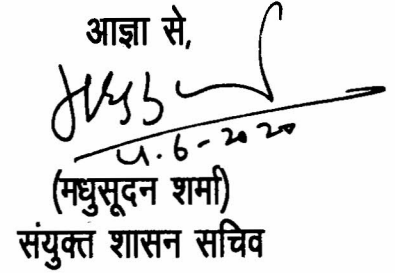 आज्ञा से,
4.6-2020
(मधुसूदन शर्मा)
संयुक्त शासन सचिव